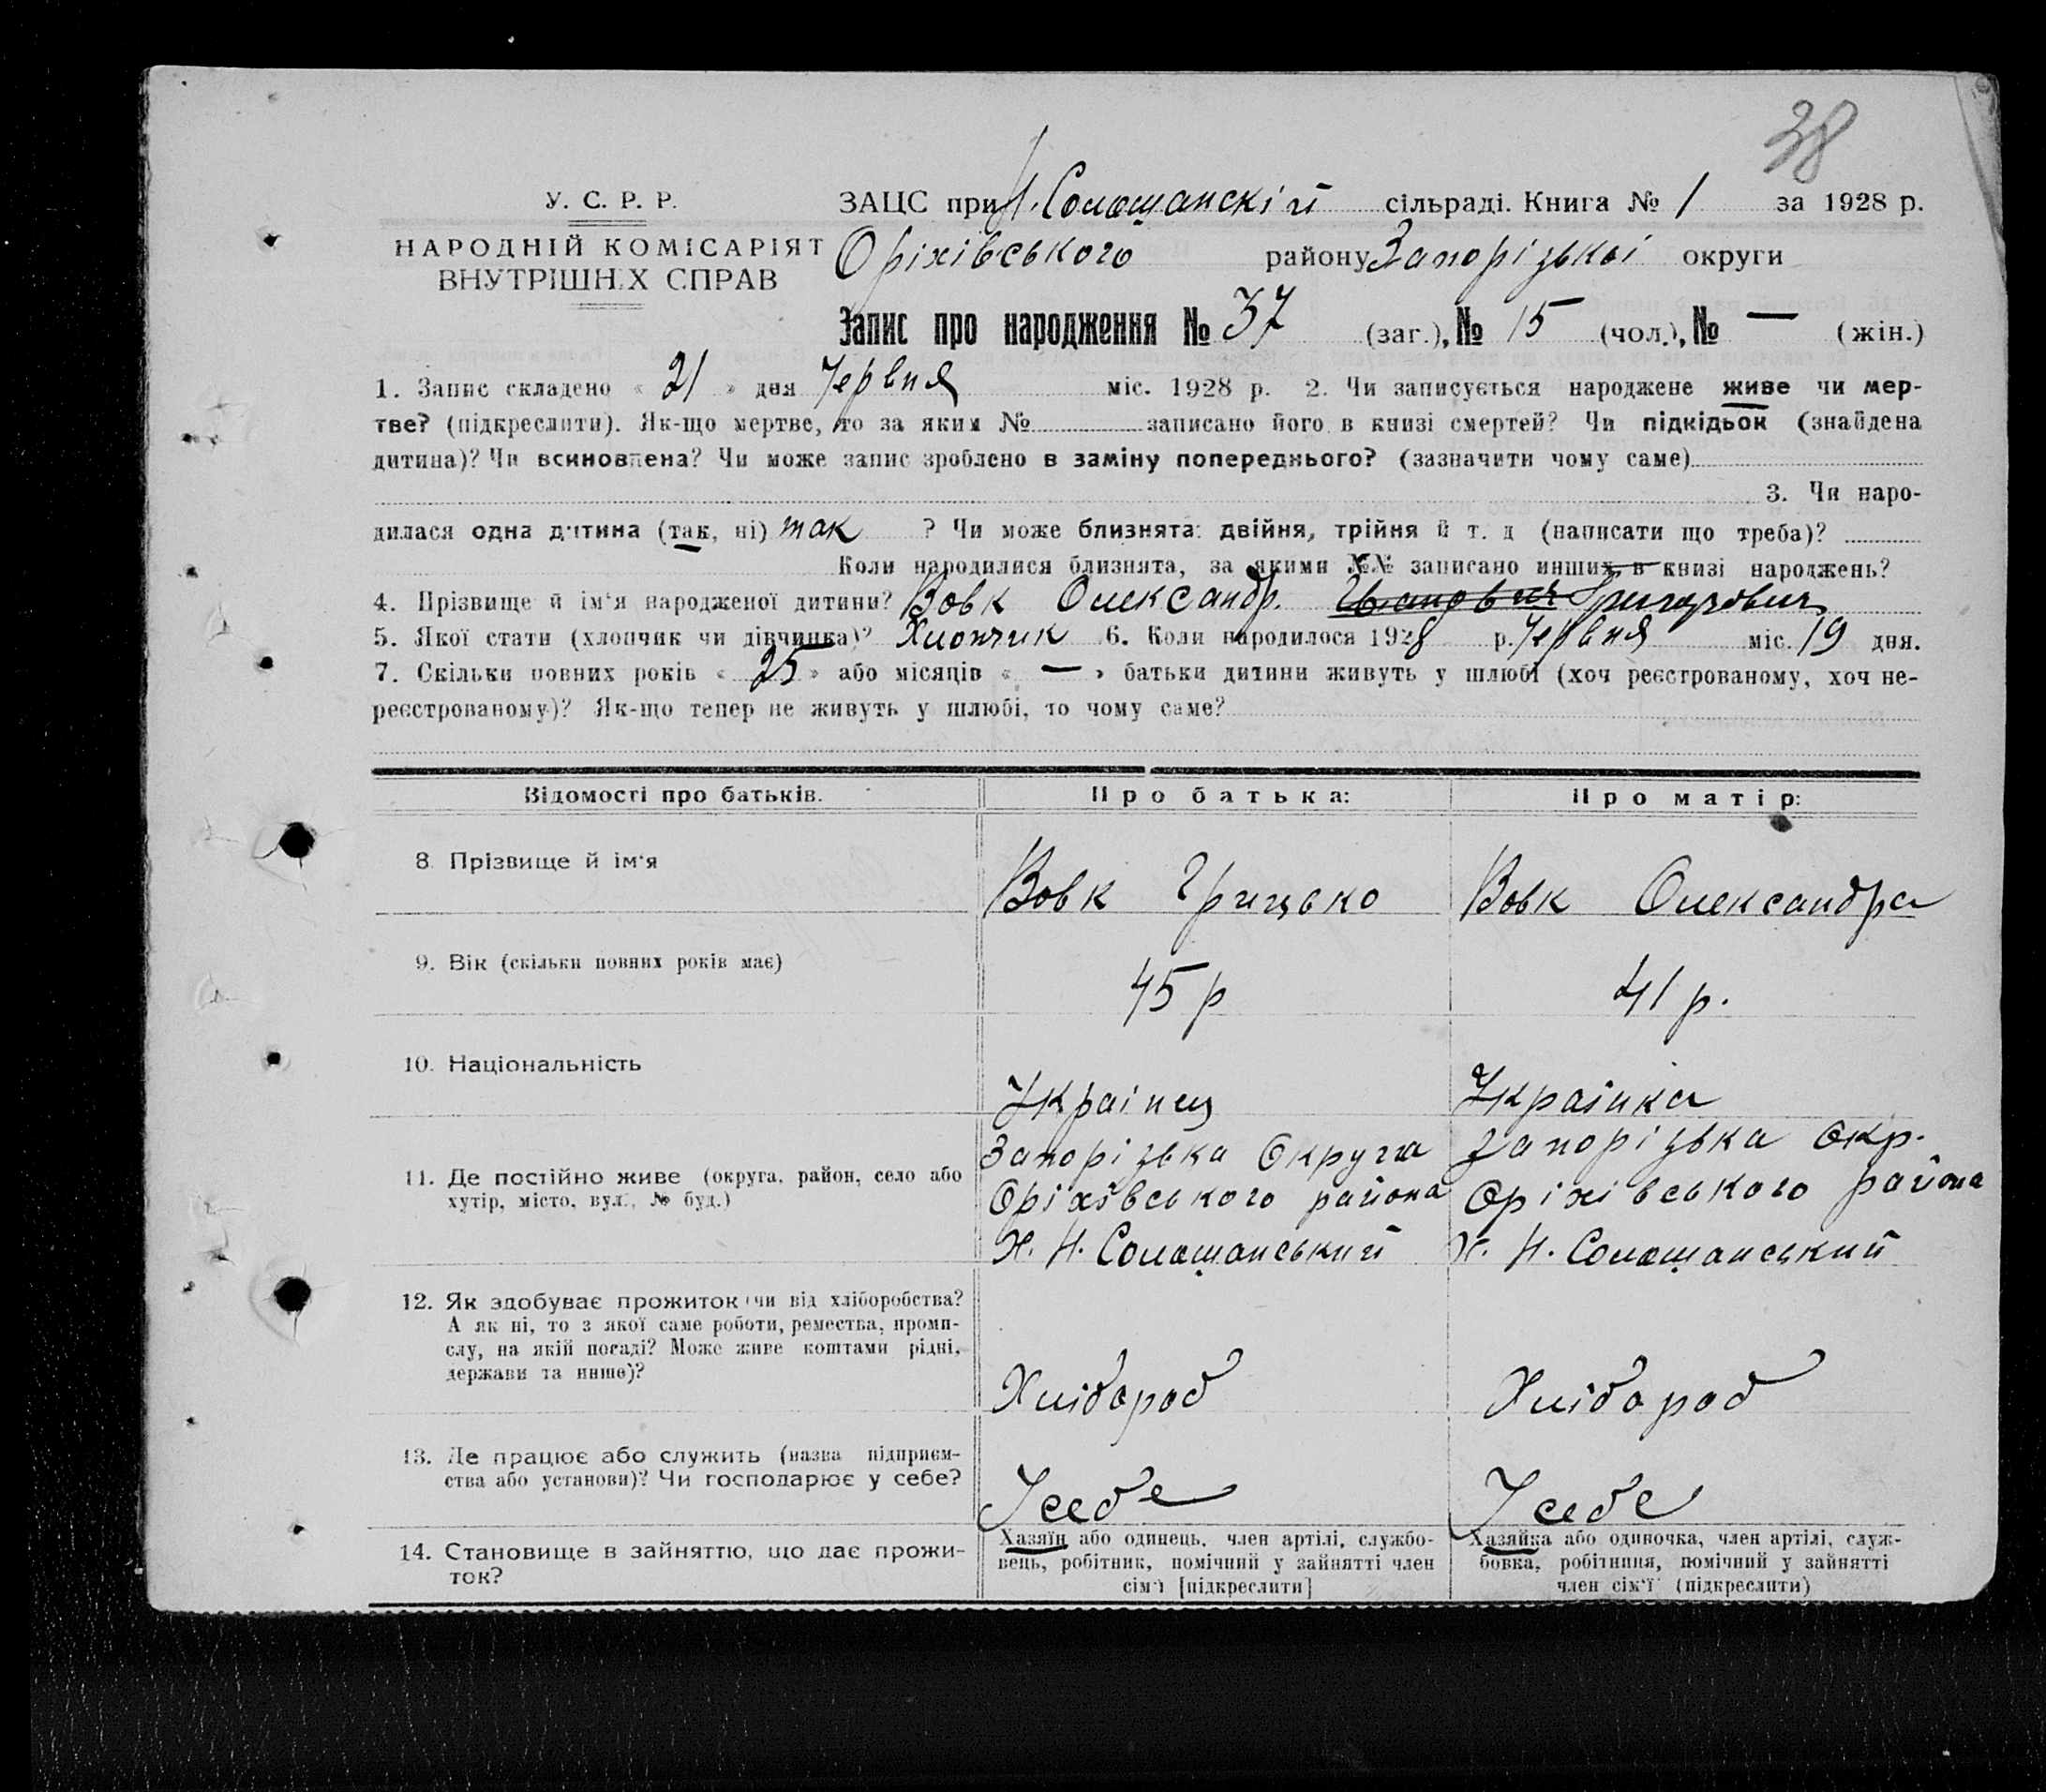 38
У. С. Р. Р.
НАРОДНІЙ КОМІСАРІЯТ
ВНУТРІШНІХ СПРАВ
ЗАЦС при Н. Солошанскій сільраді. Книга № 1 за 1928 р.
Оріхівського району Запорізької округи
Запис про народження № 37 (заг.), № 15 (чол.), № — (жін.)
1. Запис складено « 21 » дня Червня міс. 1928 р. 2. Чи записується народжене живе чи мер-
тве? (підкреслити). Як-що мертве, то за яким № записано його в книзі смертей? Чи підкідьок (знайдена
дитина)? Чи всиновлена? Чи може запис зроблено в заміну попереднього? (зазначити чому саме)
3. Чи наро-
дилася одна дитина (так, ні) так ? Чи може близнята: двійня, трійня й т. д (написати що треба)?
Коли народилися близнята, за якими №№ записано инших в книзі народжень?
4. Прізвище й ім'я народженої дитини? Вовк Олександр. Иванович Григорович
5. Якої стати (хлопчик чи дівчинка)? Хлопчик 6. Коли народилося 1928 р. Червня міс. 19 дня.
7. Скільки повних років « 25 » або місяців « — » батьки дитини живуть у шлюбі (хоч реєстрованому, хоч не-
реєстрованому)? Як-що тепер не живуть у шлюбі, то чому саме?
Відомості про батьків.
Про батька:
Про матір:
8. Прізвище й ім'я
Вовк Грицько
Вовк Олександра
9. Вік (скільки повних років має)
45 р
41 р.
10. Національність
Українец
Українка
11. Де постійно живе (округа, район, село або
хутір, місто, вул., № буд.)
Запорізька Округа
Оріхівського района
Х. Н. Солошанський
Запорізька Окр.
Оріхівського района
Х. Н. Солошанський
12. Як здобуває прожиток чи від хліборобства?
А як ні, то з якої саме роботи, ремества, проми-
слу, на якій посаді? Може живе коштами рідні,
держави та инше)?
Хлібороб
Хлібороб
13. Де працює або служить (назва підприєм-
ства або установи)? Чи господарює у себе?
У себе
У себе
14. Становище в зайняттю, що дає прожи-
ток?
Хазяїн або одинець, член артілі, службо-
вець, робітник, помічний у зайнятті член
сім'ї [підкреслити]
Хазяйка або одиночка, член артілі, служ-
бовка, робітниця, помічний у зайнятті
член сім'ї (підкреслити)